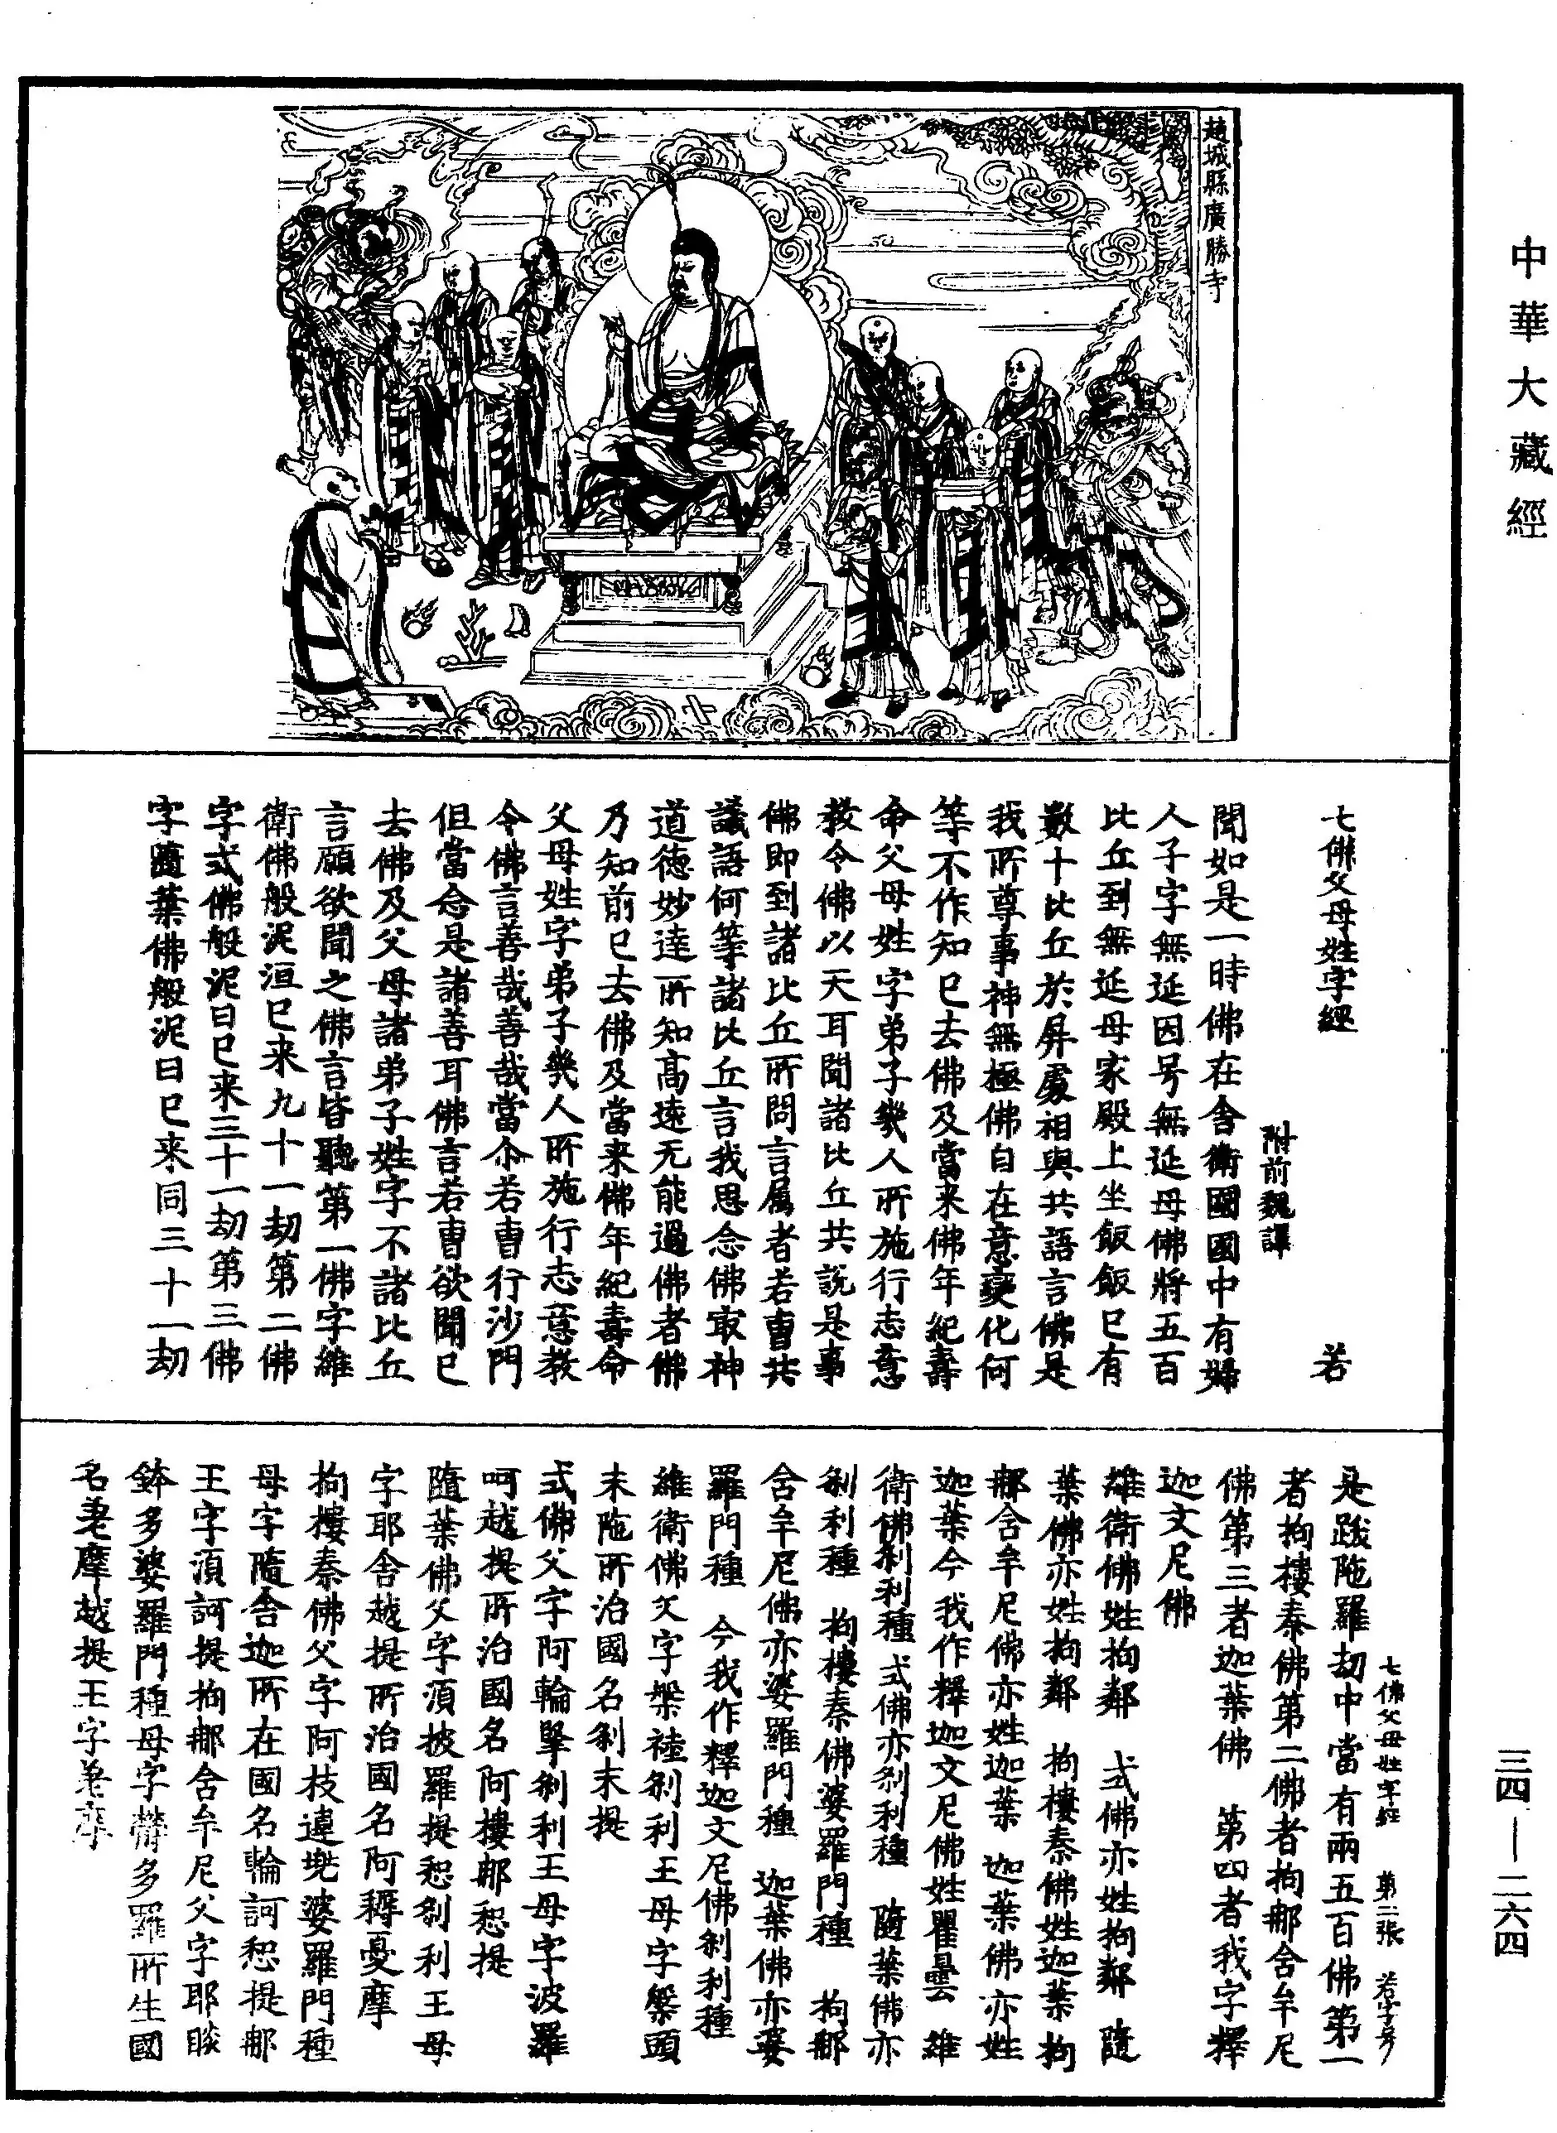 中華大藏經
趙城縣廣勝寺
七佛父母姓字經
若
附前魏譯
聞如是一時佛在舍衛國國中有婦
人子字無延因号無延母佛將五百
比丘到無延母家殿上坐飯飯已有
數十比丘於屏處相與共語言佛是
我所尊事神無極佛自在意變化何
等不作知已去佛及當来佛年紀壽
命父母姓字弟子幾人所施行志意
教令佛以天耳聞諸比丘共說是事
佛即到諸比丘所問言属者若曹共
議語何等諸比丘言我思念佛㝡神
道德妙達所知高遠无能過佛者佛
乃知前已去佛及當来佛年紀壽命
父母姓字弟子幾人所施行志意教
令佛言善哉善哉當尒若曹行沙門
但當念是諸善耳佛言若曹欲聞已
去佛及父母諸弟子姓字不諸比丘
言願欲聞之佛言皆聽第一佛字維
衛佛般泥洹已来九十一劫第二佛
字式佛般泥曰已来三十一劫第三佛
字隨葉佛般泥曰已来同三十一劫
七佛父母姓字經 第二张 若字号
是跋陁羅劫中當有兩五百佛第一
者拘樓秦佛第二佛者拘那舍牟尼
佛第三者迦葉佛 第四者我字釋
迦文尼佛
維衛佛姓拘鄰 式佛亦姓拘鄰 隨
葉佛亦姓拘鄰 拘樓秦佛姓迦葉拘
那舍牟尼佛亦姓迦葉 迦葉佛亦姓
迦葉今我作釋迦文尼佛姓瞿曇 維
衛佛刹利種 式佛亦刹利種 隨葉佛亦
刹利種 拘樓秦佛婆羅門種 拘那
舍牟尼佛亦婆羅門種 迦葉佛亦婆
羅門種 今我作釋迦文尼佛刹利種
維衛佛父字槃裱刹利王母字槃頭
末陁所治國名刹末提
式佛父字阿輪拏刹利王母字波羅
呵越提所治國名阿樓那惒提
隨葉佛父字須披羅提惒刹利王母
字耶舍越提所治國名阿耨憂摩
拘樓秦佛父字阿枝違兠婆羅門種
母字隨舍迦所在國名輪訶惒提那
王字須訶提拘那舍牟尼父字耶睒
鉢多婆羅門種母字欝多羅所生國
名差摩越提王字差摩
三四—二六四